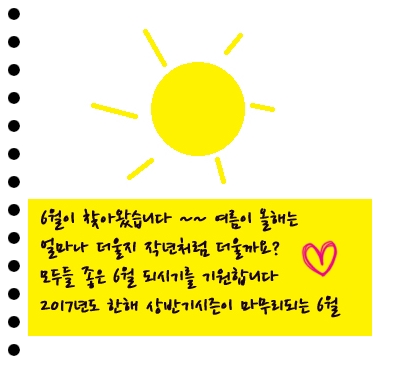 6월이 찾아왔습니다 ~~ 여름이 올해는
얼마나 더울지 작년처럼 더울까요?
모두들 좋은 6월 되시기를 기원합니다
2017년도 한해 상반기시즌이 마무리되는 6월